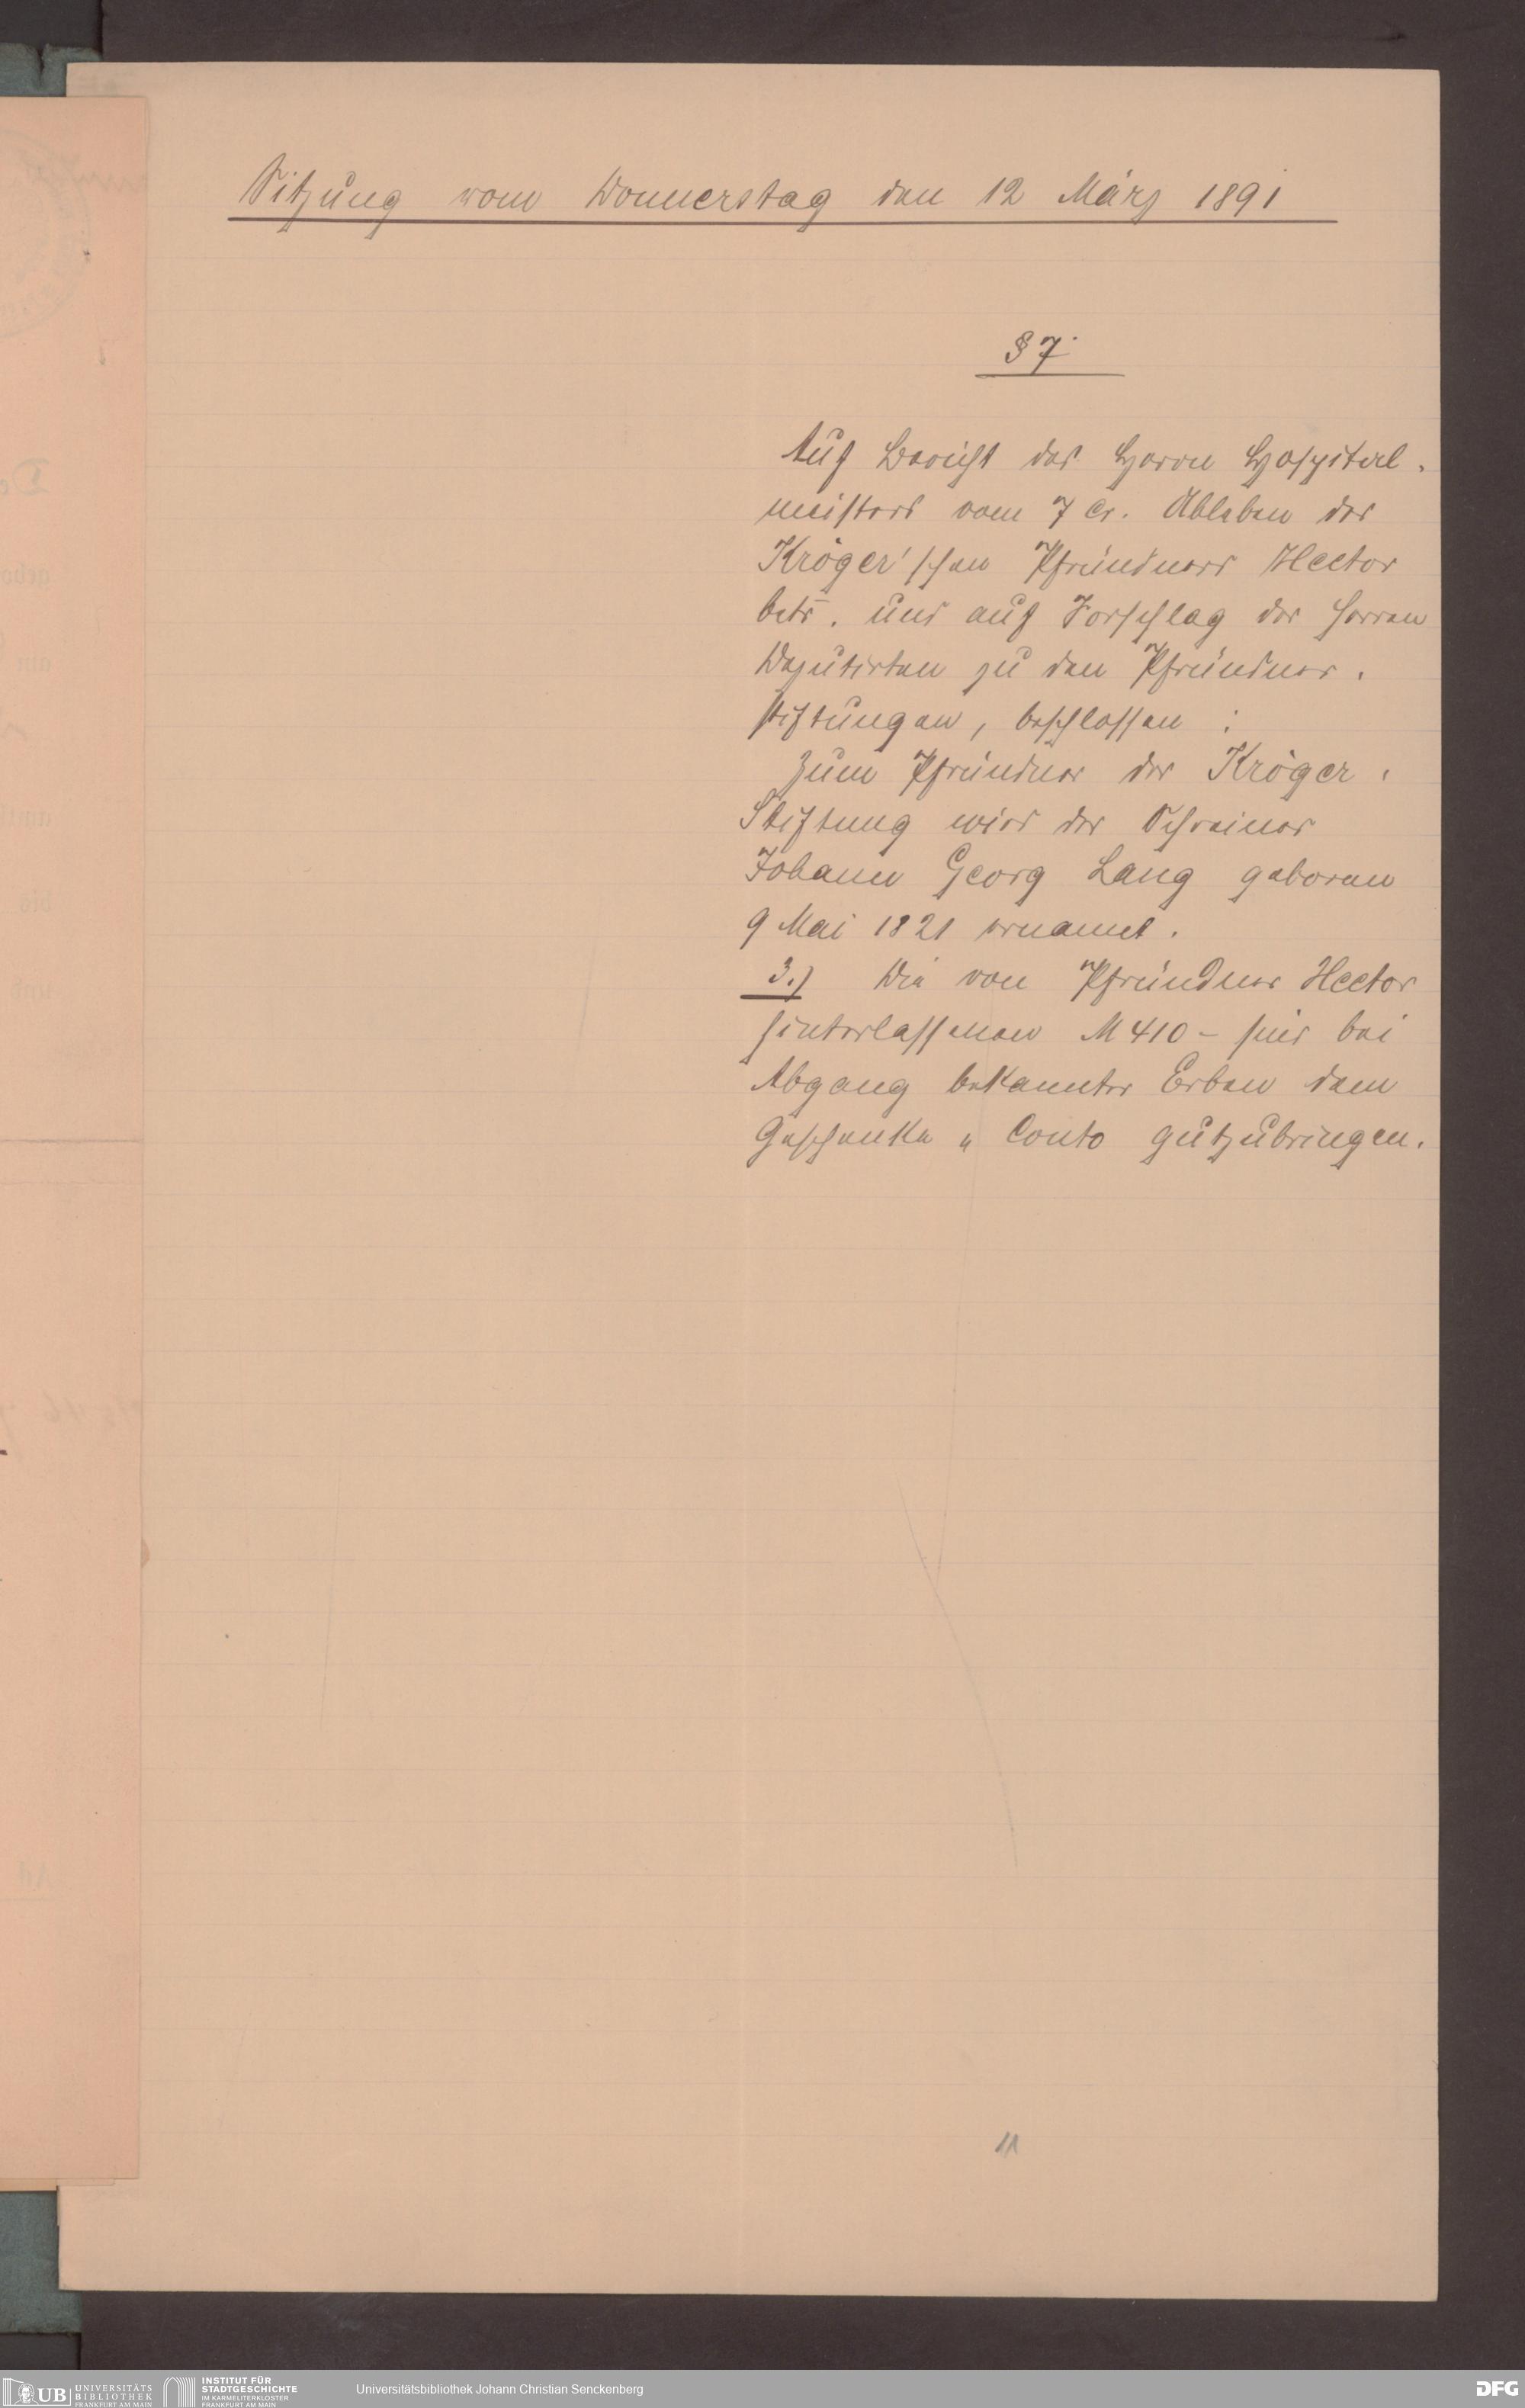 Sitzung vom Donnerstag den 12 März 1891
§ 7
Auf Bericht des Herrn Hospital-
meisters vom 7 cr. Ableben des
Kröger'schen Pfründners Hector
betr. und auf Vorschlag der Herren
Deputirten zu den Pfründner-
stiftungen, beschlossen :
Zum Pfründner der Kröger-
Stiftung wird der Schreiner
Johann Georg Lang geboren
9 Mai 1821 ernannt.
3.) Die von Pfründner Hector
hinterlassenen M 410 - sind bei
Abgang bekannter Erben dem
Geschenke - Conto gutzubringen.
11
UB UNIVERSITÄTS
BIBLIOTHEK
FRANKFURT AM MAIN
INSTITUT FÜR
STADTGESCHICHTE
IM KARMELITERKLOSTER
FRANKFURT AM MAIN
Universitätsbibliothek Johann Christian Senckenberg
DFG